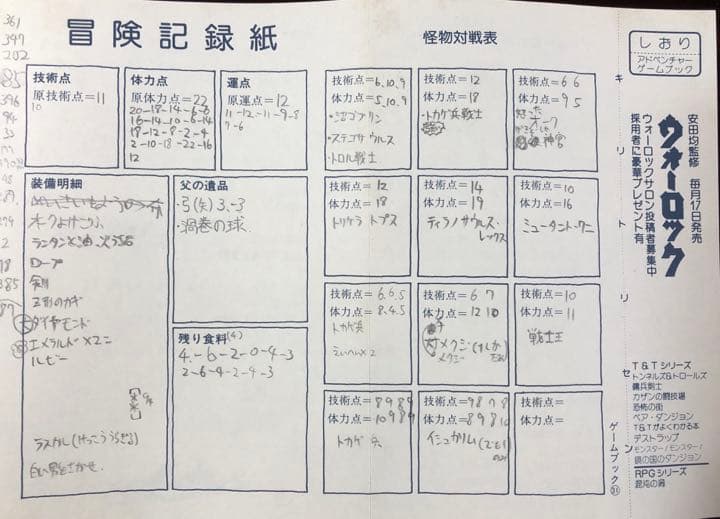 361
397
202
85
396
94
385
冒険記録紙
怪物対戦表
技術点
原技術点=11
10
体力点
原体力点=22
20-18-14-6-6
16-14-10-6-14
18-12-8-2-4
2-10-18-22-16
12
運点
原運点=12
11-12-11-9-8
7-6
装備明細
オークよけこうふ
ランタンと油
ロープ
剣
五形のカギ
ダイヤモンド
エメラルド×2コ
ルビー
ラスカル(けっこううらぎる)
白い男をさがせ.
父の遺品
・弓(矢)3.-3
・渦巻の球
残り食料(4)
4.-6-2-0-4-3
2-6-4-2-4-3
技術点=6.10.9
体力点=5.10.9
・沼ゴブリン
・ステゴサウルス
・トロル戦士
技術点=12
体力点=18
・トカゲ兵戦士
技術点=6 6
体力点=9 5
オーク
神官
技術点=12
体力点=18
トリケラトプス
技術点=14
体力点=19
ティラノサウルス・
レックス
技術点=10
体力点=16
ミュータント・ワニ
技術点=6.6.5
体力点=8.4.5
トカゲ兵
えいへい×2
技術点=6 7
体力点=12 10
メクジ
技術点=10
体力点=11
戦士王
技術点=8989
体力点=10989
トカゲ兵
技術点=9878
体力点=89810
イシュカリム
技術点=
体力点=
キリトリセン
しおり
アドベンチャー
ゲームブック
安田均監修 毎月17日発売
ウォーロック
ウォーロックサロン投稿者募集中
採用者に豪華プレゼント有
T&Tシリーズ
トンネルズ&トロールズ
傭兵剣士
カザンの闘技場
恐怖の街
ベア・ダンジョン
T&Tがよくわかる本
デストラップ
モンスター!モンスター!
鏡の国のダンジョン
RPGシリーズ
混沌の渦
ゲームブック㉛